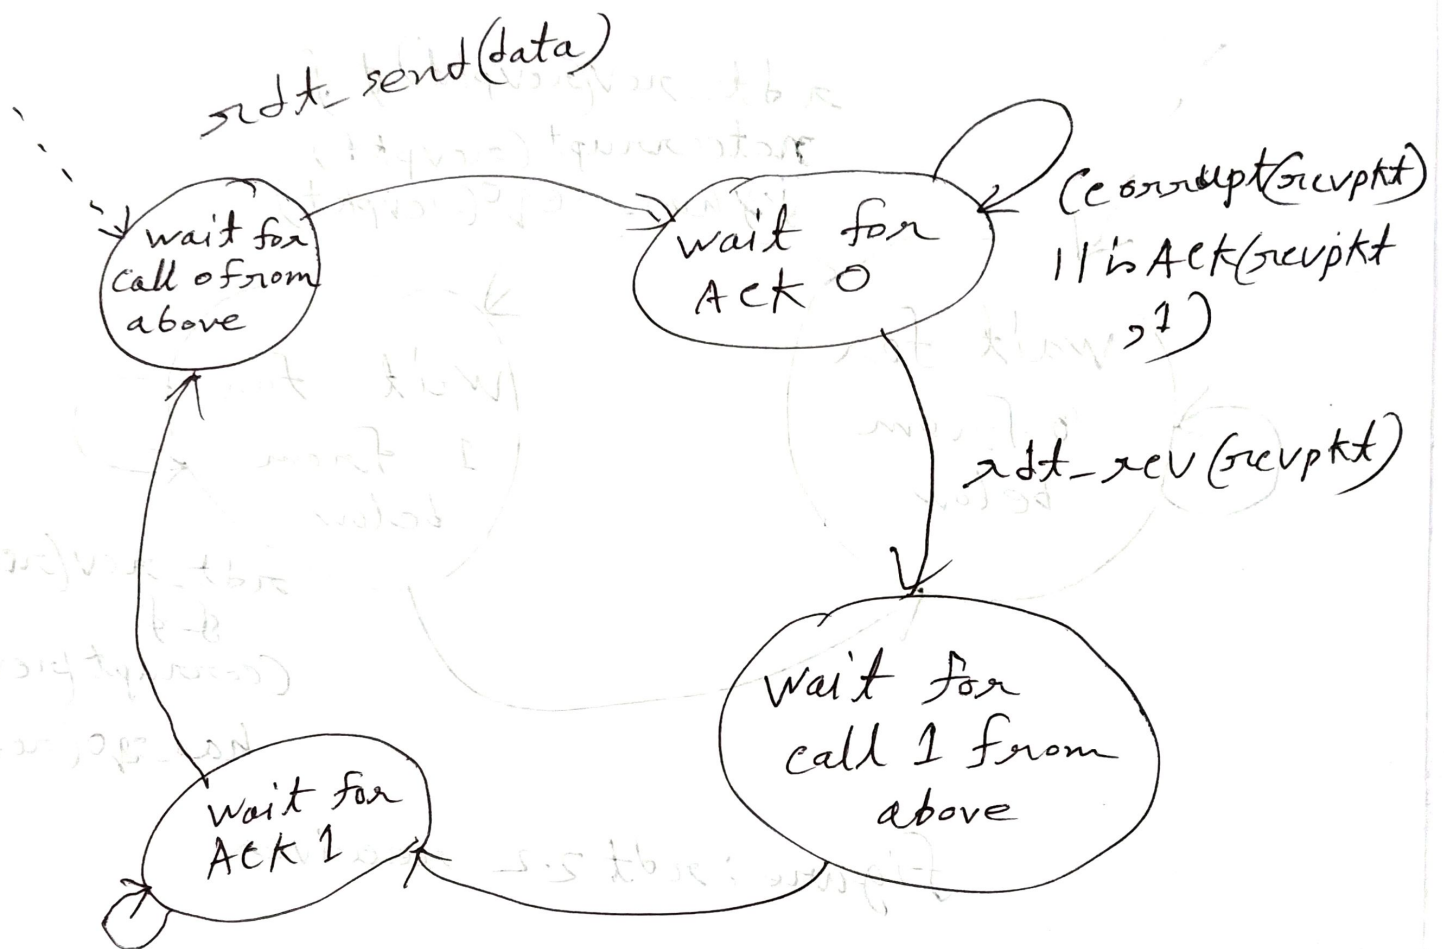 rdt_send(data)
wait for
call 0 from
above
wait for
Ack 0
(corrupt(rcvpkt)
|| is Ack(rcvpkt
,1)
rdt_rcv(rcvpkt)
wait for
call 1 from
above
wait for
Ack 1